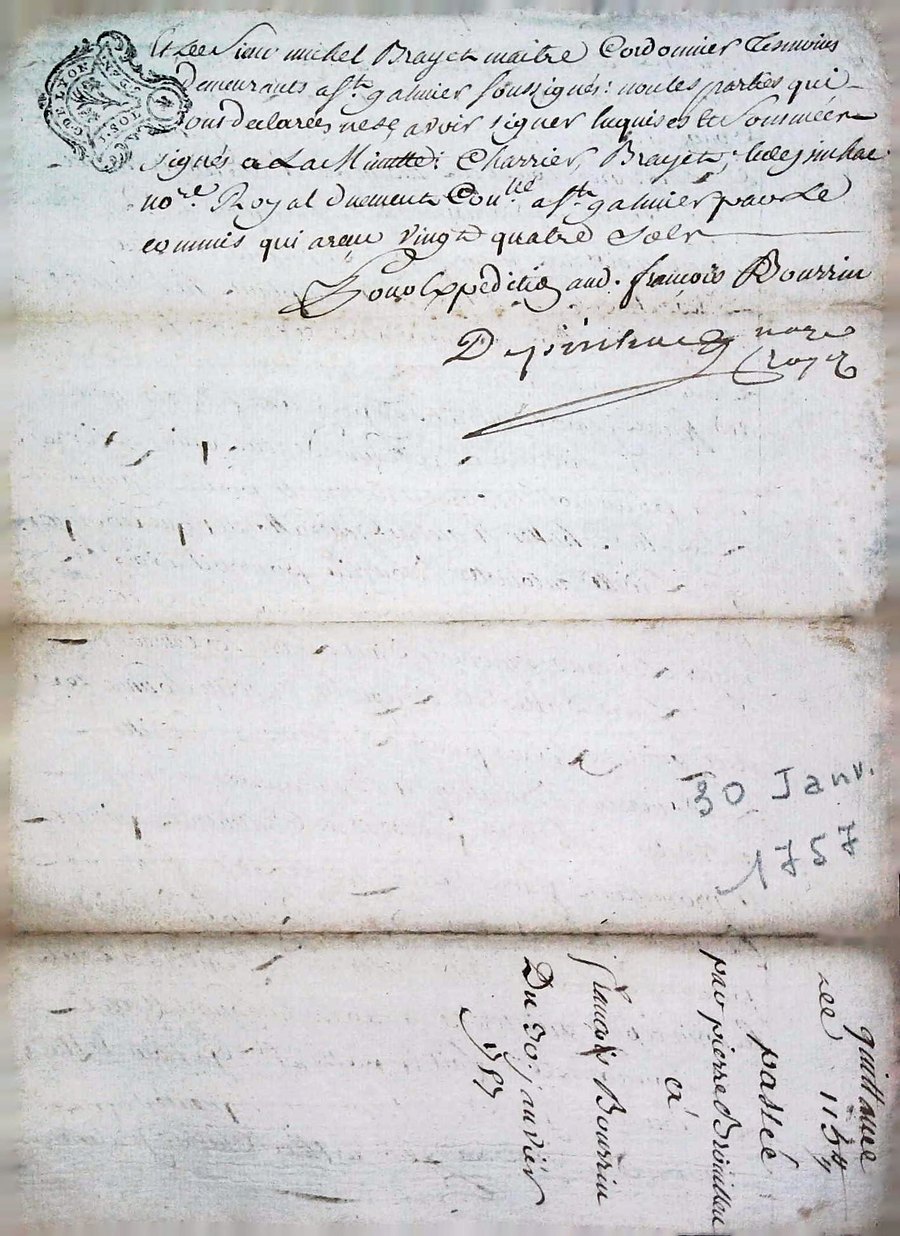 GEN. LYON
1. SOL
Et Lee Sieur michel Brayet maitre Cordonnier Tesmoins
Demeurants a St. galmier soussignés: non les parties qui
ont declarées ne sç avoir signer Enquises & Sommées
signés a La Minutte: Charrier, Brayet,
nore. Royal duement Conllé a St. galmier par Le
commis qui a reçu vingt quatre sols
Pour Expeditio aud. françois Bourrin
nore
royal
30 Janv.
1757
quittance
passée
par pierre
a
françois Bourrin
Du 30e janvier
1757